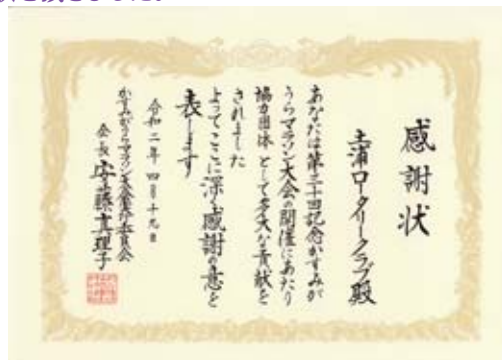 感謝状
土浦ロータリークラブ殿
あなたは第三十回記念かすみが
うらマラソン大会の開催にあたり
協力団体として多大な貢献を
されました
よってここに深く感謝の意を
表します
令和二年四月十九日
かすみがうらマラソン大会実行委員会
会長 安藤真理子